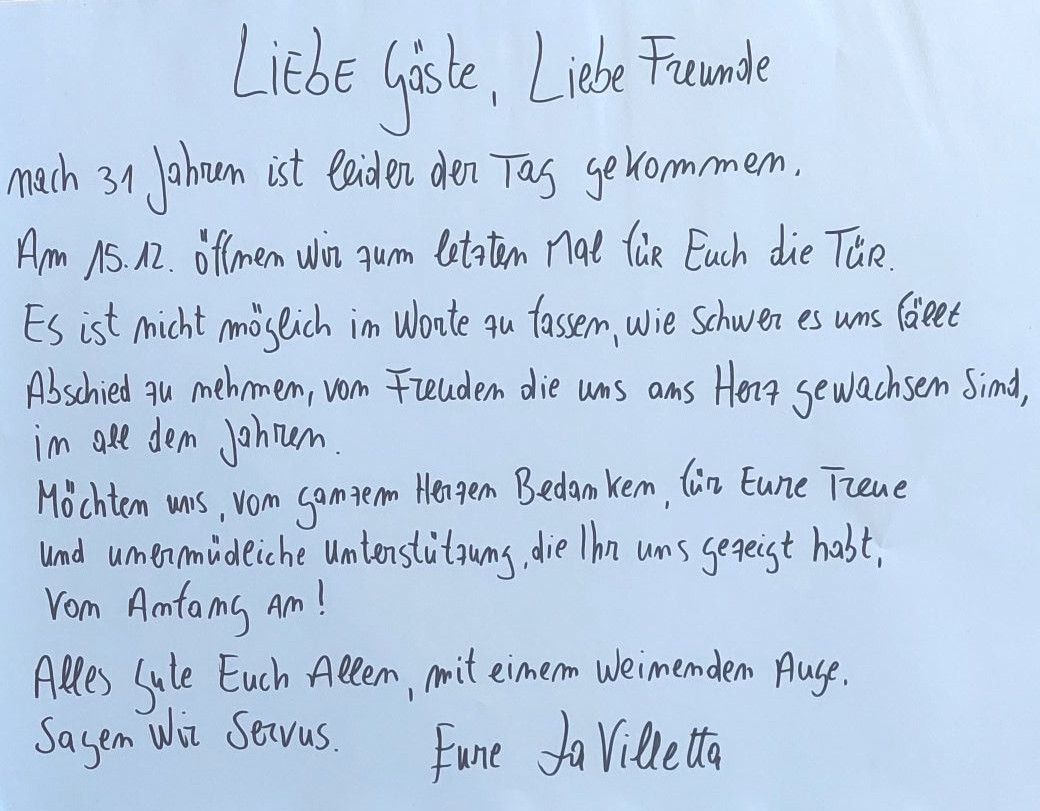 Liebe Gäste, Liebe Freunde
nach 31 Jahren ist leider der Tag gekommen.
Am 15.12. öffnen wir zum letzten Mal für Euch die Tür.
Es ist nicht möglich in Worte zu fassen, wie Schwer es uns fällt
Abschied zu nehmen, von Freuden die uns ans Herz gewachsen Sind,
in all den Jahren.
Möchten uns, von ganzem Herzen Bedanken, für Eure Treue
und unermüdliche Unterstützung, die Ihr uns gezeigt habt,
Von Anfang An!
Alles Gute Euch Allen, mit einem weinenden Auge.
Sagen Wir Servus.
Eure La Villetta